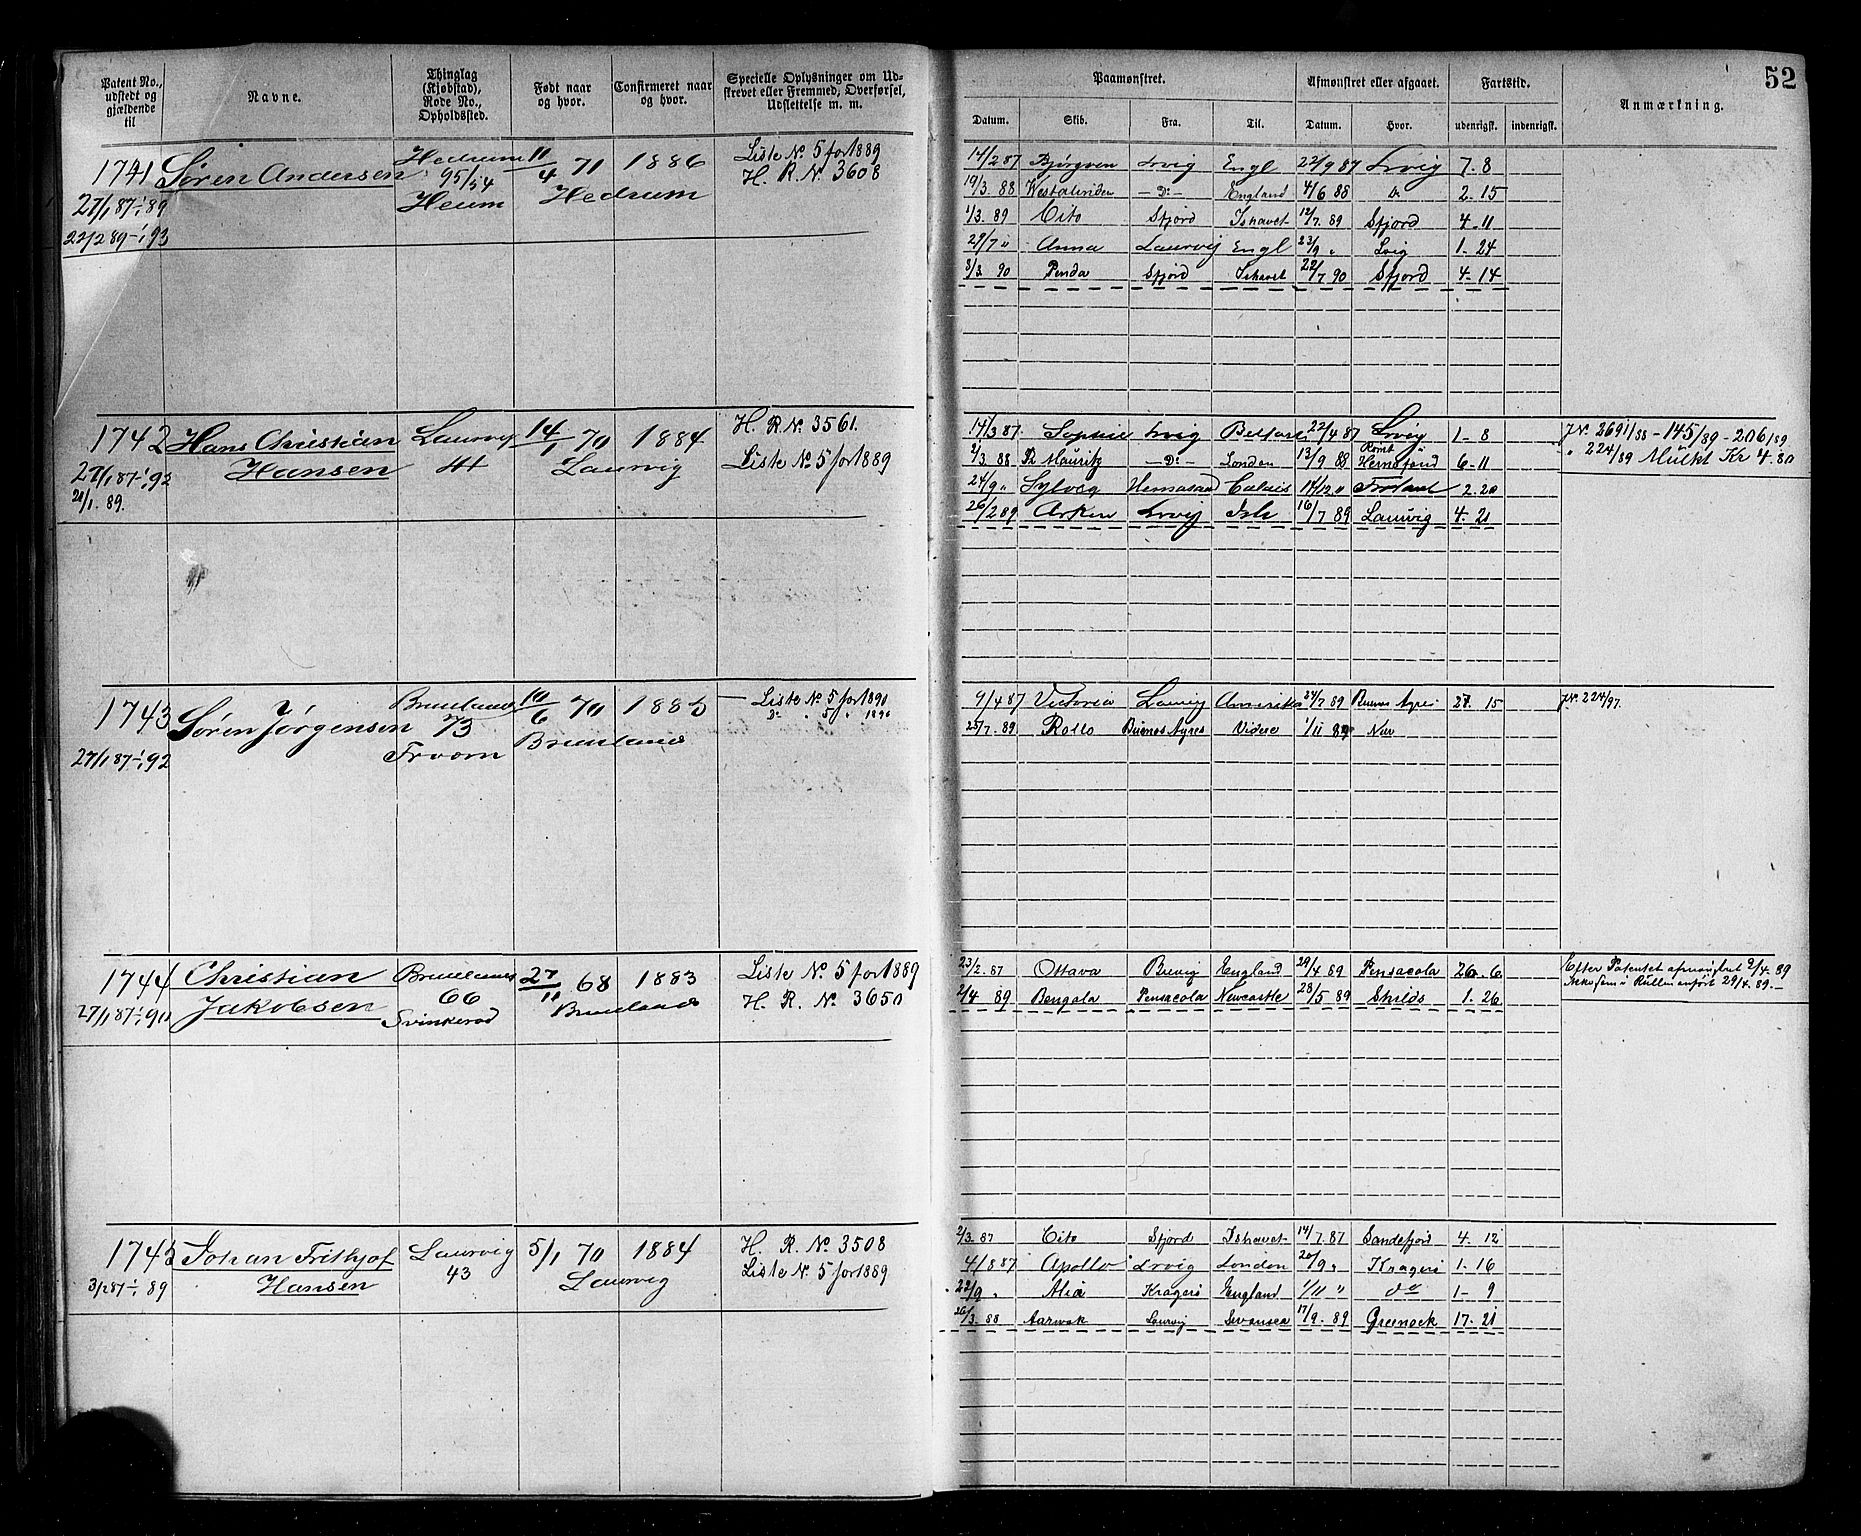 52
Patent No., udstedt og gjældende til
Navne.
Thinglag (Kjøbstad), Rode No., Opholdssted.
Født naar og hvor.
Confirmeret naar og hvor.
Specielle Oplysninger om Udskrevet eller Fremmed, Overførsel, Udslettelse m. m.
Paamønstret.
Afmønstret eller afgaaet.
Fartstid.
Anmærkning.
Datum. Skib. Fra. Til. Datum. Hvor. udenrigst. indenrigst.
1741 Søren Andersen Hedrum 11/4 71 1886 Liste No 5 for 1889
95/54 Hedrum H. R. No 3608
27/1 87-1/1 89 Heum
22/2 89-1/1 93
14/2 87 Bjørgven Lrvig Engl 22/9 87 Lrvig 7. 8
19/3. 88 -Do- England 4/6 88 2. 15
1/3. 89 Cito Sfjord Ishavet 12/7. 89 Sfjord 4. 11
29/7 " Anna Laurvig Engl 23/9 " Lvig 1. 24
3/3. 90 Penda Sfjord Ishavet 22/7 90 Sfjord 4. 14
1742 Hans Christian Laurvig 14/1 70 1884 H. R. No. 3561.
Hansen 44 Laurvig Liste No 5 for 1889
27/1 87-1/1 92
21/1. 89.
14/3 87 Sophie Lrvig Belfast 22/4 87 Lrvig 1. 8 J.No. 2691/88 - 145/89 - 206/89
2/3. 88 Mauritz -Do- London 13/9 88 Rømt Hernøsand 6. 11 " 224/89 Mulkt Kr 4.80
24/9 " Sylveg Hernøsand Calais 14/12 " 2. 20
26/2 89 Arken Lrvig Ish 16/7 89 Laurvig 4. 21
1743 Søren Jørgensen Brunlanes 10/6 70 1885 Liste No 5 for 1891
73 Brunlanes Do " 5 " 1896
27/1 87-1/1 92
9/4 87 Victoria Laurvig Amerika 24/7 89 Buenos Ayres 27. 15 J.No. 224/97.
25/7. 89 Rollo Buenos Ayres Videre 1/11 89
1744 Christian Brunlanes 27/11 68 1883 Liste No. 5 for 1889
Jakobsen 66 Brunlanes H. R. No. 3650
27/1 87-1/1 90 Svinkerød
23/2. 87 Ottava Brevig England 29/4 89 Pensacola 26. 6. Efter Patentet afmønstret 2/4. 89
2/4 89 Bengala Pensacola Newcastle 28/5 89 Shilds 1. 26 29/4. 89.
1745 Johan Frithjof Laurvig 5/1 70 1884 H. R. No. 3508
Hansen 43 Laurvig Liste No. 5 for 1889
3/2 87-1/1 89
2/3. 87 Cito Sfjord Ishavet 14/7. 87 Sandefjord 4. 12
4/8 87 Apollo Lrvig London 20/9 " Kragerø 1. 16
22/9 " Alia Kragerø England 1/11 " do 1- 9
26/3. 88 Aarvak Laurvig Swansea 17/9. 89 Greenock 17. 21